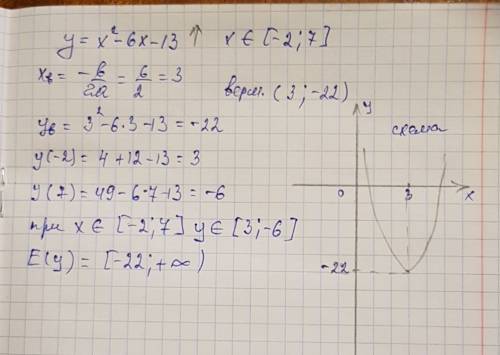 y = x² - 6x - 13 ↑ x ∈ [-2; 7]
xв = -b/2a = 6/2 = 3
верш. (3; -22)
yв = 3² - 6·3 - 13 = -22
y(-2) = 4 + 12 - 13 = 3
y(7) = 49 - 6·7 - 13 = -6
при x ∈ [-2; 7] y ∈ [3; -6]
E(y) = [-22; +∞)
y
схема
0
3
x
-22